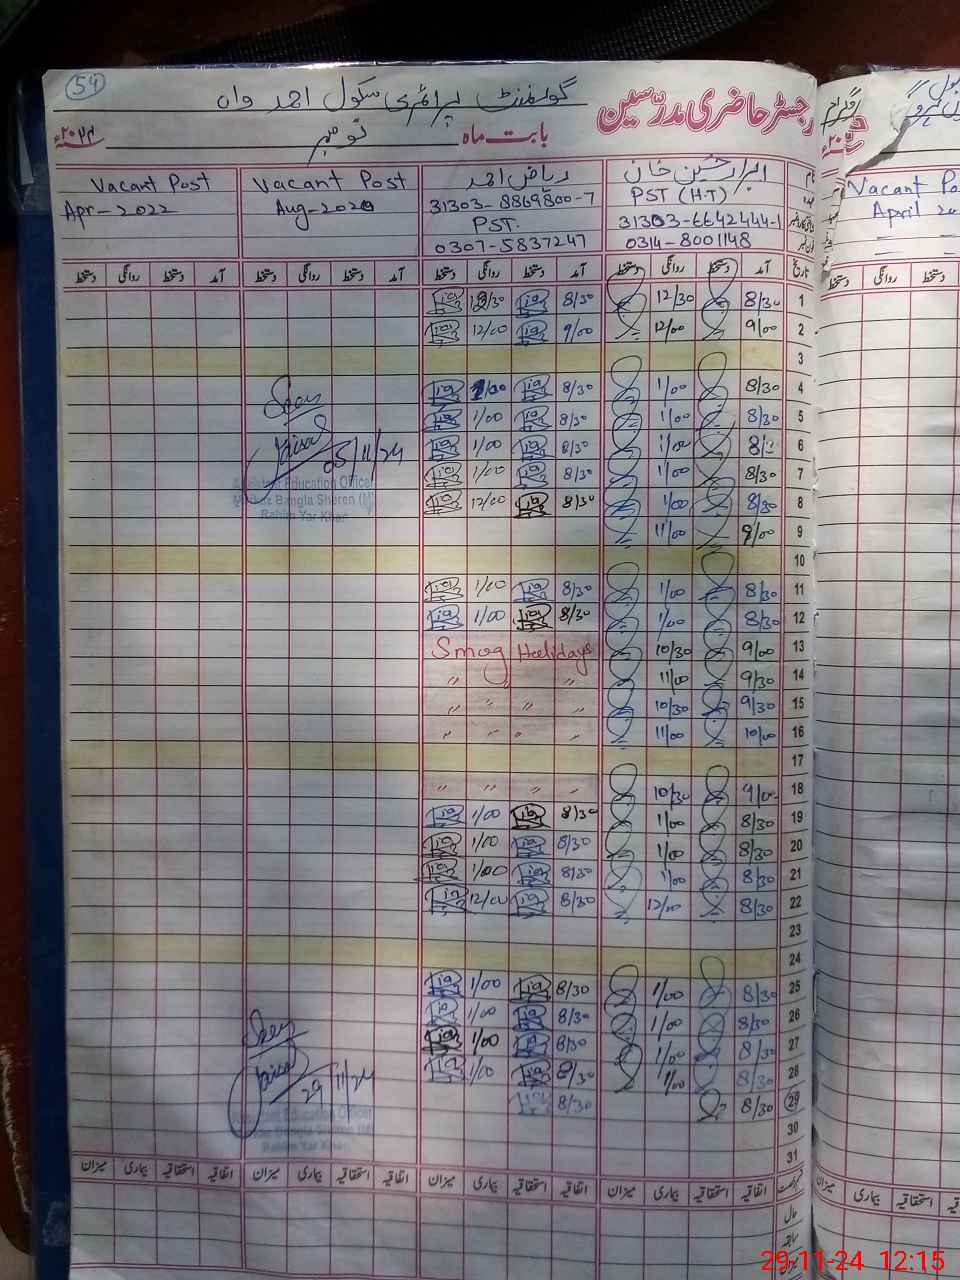 54
گورنمنٹ پرائمری سکول احمد وان
رجسٹر حاضری مدرسین
بابت ماہ نومبر ۲۰۲۴ء
Vacant Post Vacant Post ریاض احمد
Apr-2022 Aug-2020 31303-8869800-7 PST (H.T)
PST. 31303-6642444-1
0307-5837247 0314-8001148
دستخط روانگی دستخط آمد دستخط روانگی دستخط آمد دستخط روانگی دستخط آمد دستخط روانگی دستخط آمد تاریخ
12/30 8/30 12/30 8/30 1
12/00 9/00 12/00 9/00 2
3
1/00 8/30 1/00 8/30 4
1/00 8/30 1/00 8/30 5
1/00 8/30 1/00 6
1/00 8/30 1/00 8/30 7
12/00 8/30 1/00 8/30 8
11/00 9/00 9
10
1/00 8/30 1/00 8/30 11
1/00 8/30 1/00 8/30 12
Smog Holidays 10/30 9/00 13
" " 11/00 9/30 14
" " " " 10/30 9/30 15
" " " " 11/00 10/00 16
17
" " " " 10/30 9/00 18
1/00 8/30 1/00 8/30 19
1/00 8/30 1/00 8/30 20
1/00 8/30 1/00 8/30 21
12/00 8/30 12/00 8/30 22
23
24
1/00 8/30 1/00 8/30 25
1/00 8/30 1/00 8/30 26
1/00 8/30 1/00 8/30 27
1/00 8/30 1/00 8/30 28
8/30 8/30 29
30
31
Seen
05/11/24
Assistant Education Officer
Markaz Bangla Sheren (M)
Rahim Yar Khan
Seen
29/11/24
Assistant Education Officer
Markaz Bangla Sheren (M)
Rahim Yar Khan
میزان بیماری استحقاقیہ اتفاقیہ میزان بیماری استحقاقیہ اتفاقیہ میزان بیماری استحقاقیہ اتفاقیہ میزان بیماری استحقاقیہ اتفاقیہ
حال
سابقہ
میزان
Vacant
April
دستخط روانگی
میزان بیماری استحقاقیہ
29-11-24 12:15